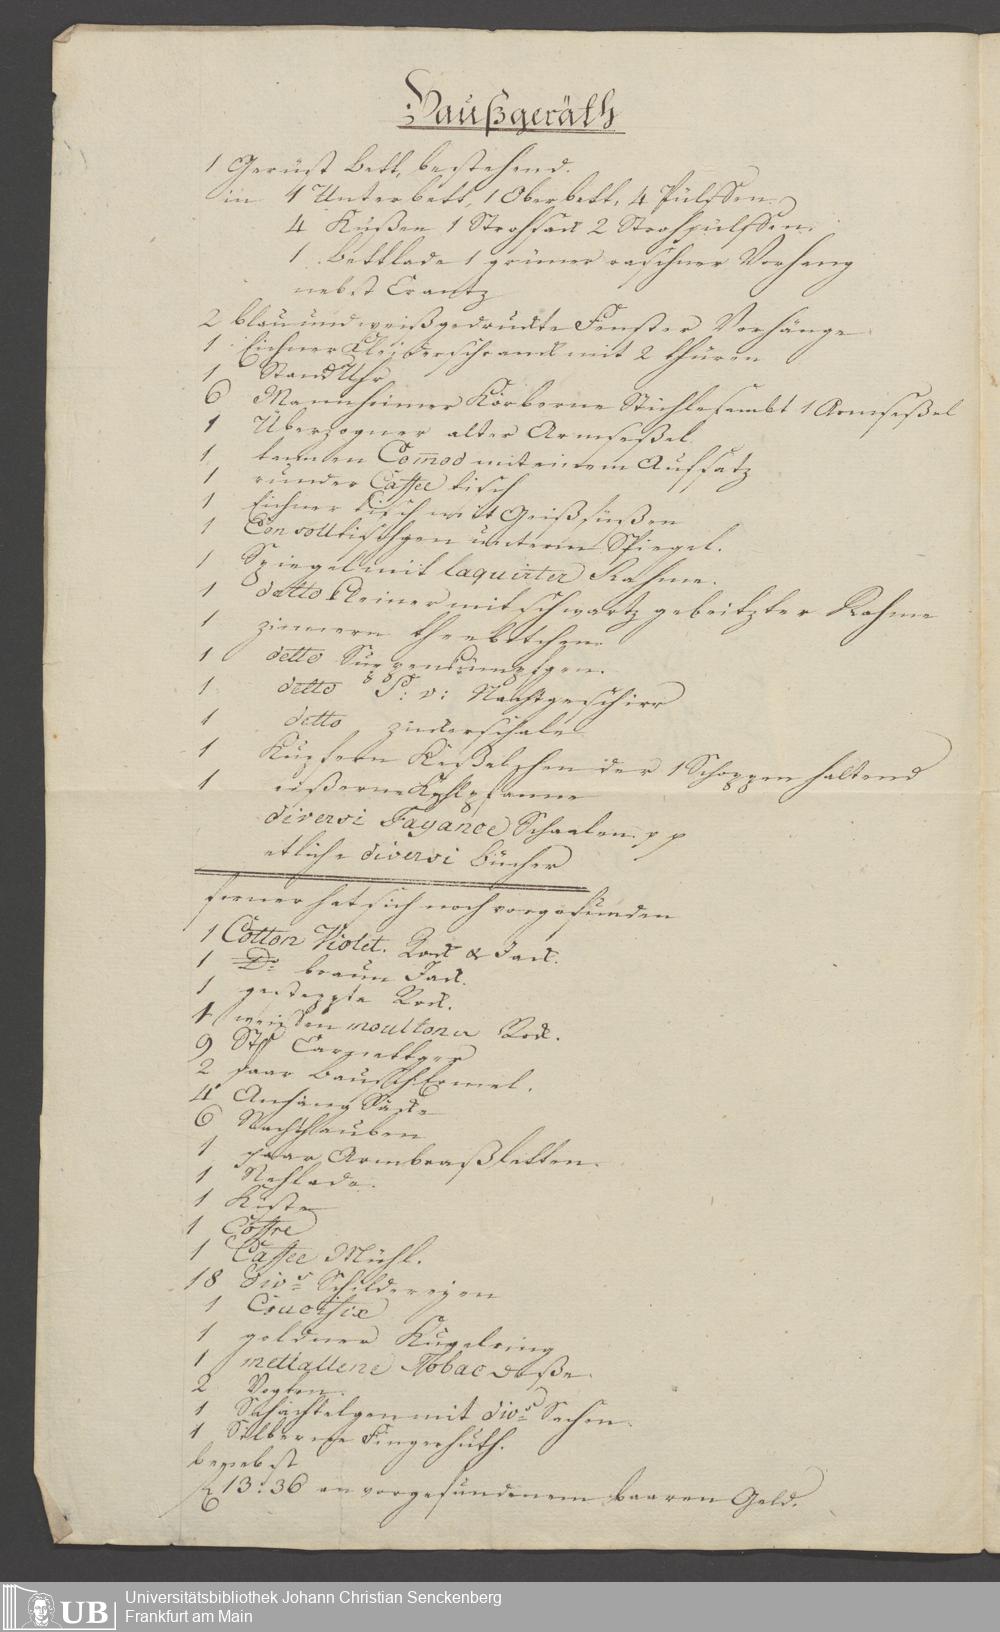 Haußgeräth
1 Gerüst Bett, bestehend.
in 1 Unterbett, 1 Oberbett, 4 Pülffen.
4 Küßen 1 Strohsack 2 Strohpülffen.
1 Bettlade 1 grüner raschner Vorhang
nebst Crantz
2 blau und weiß gedruckte Fenster Vorhänge
1 Eichner Kleiderschranck mit 2 thüren
1 Stand Uhr
6 Mannheimer Körberne Stühle sambt 1 Armseßel
1 Überzogner alter Armseßel
1 tannen Comod mit einem Aufsatz
1 runder Caffee tisch
1 Eichner tisch mit Geißfüßen
1 Consolltischgen unterm Spiegel.
1 Spiegel mit laquirter Rahme.
1 detto Kleiner mit schwartz gebeitzter Rahme
1 zinnern
1 detto Suppenkümpfgen.
1 detto S: v: Nachtgeschirr
1 detto zuckerschale
1 Kupfern Keßelchen der 1 Schoppen haltend
1 eißerne pfanne
diversi Fayance Schaalen pp
etliche diversi Bücher
ferner hat sich noch vorgefunden
1 Cotton Violet. Rock & Jack.
1 Do braun Jack.
1 gesteppte Rock.
1 weissen moultoner Rock.
9 Stk
2 paar Bausch Ermel.
4 Anhäng Säcke
6 Nachthauben
1 paar Armbraßletten.
1 Nehlade.
1 Kiste
1 Coffre
1 Caffee Mühl.
18 divs Schildereyen
1 Crucifix
1 goldner Kugelring
1 metiallene Tobac doße
2
1 Schächtelgen mit divs Sachen.
1 Silberne Fingerhuth.
benebst
f 13:36 an vorgefundenem baaren Geld.
Universitätsbibliothek Johann Christian Senckenberg
Frankfurt am Main
UB